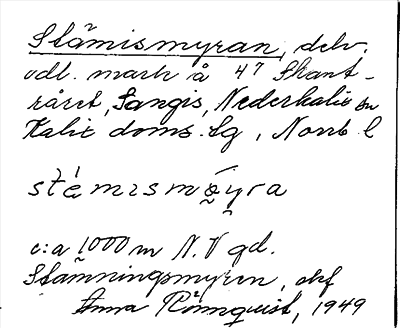 Stämismyran, delv.
odl. mark å 47 Skant-
råret, Sangis, Nederkalix sn
Kalix doms. lg, Norrb. l
c:a 1000 m N.V gd.
Stämningsmyren, okf
Anna Rönnquist, 1949